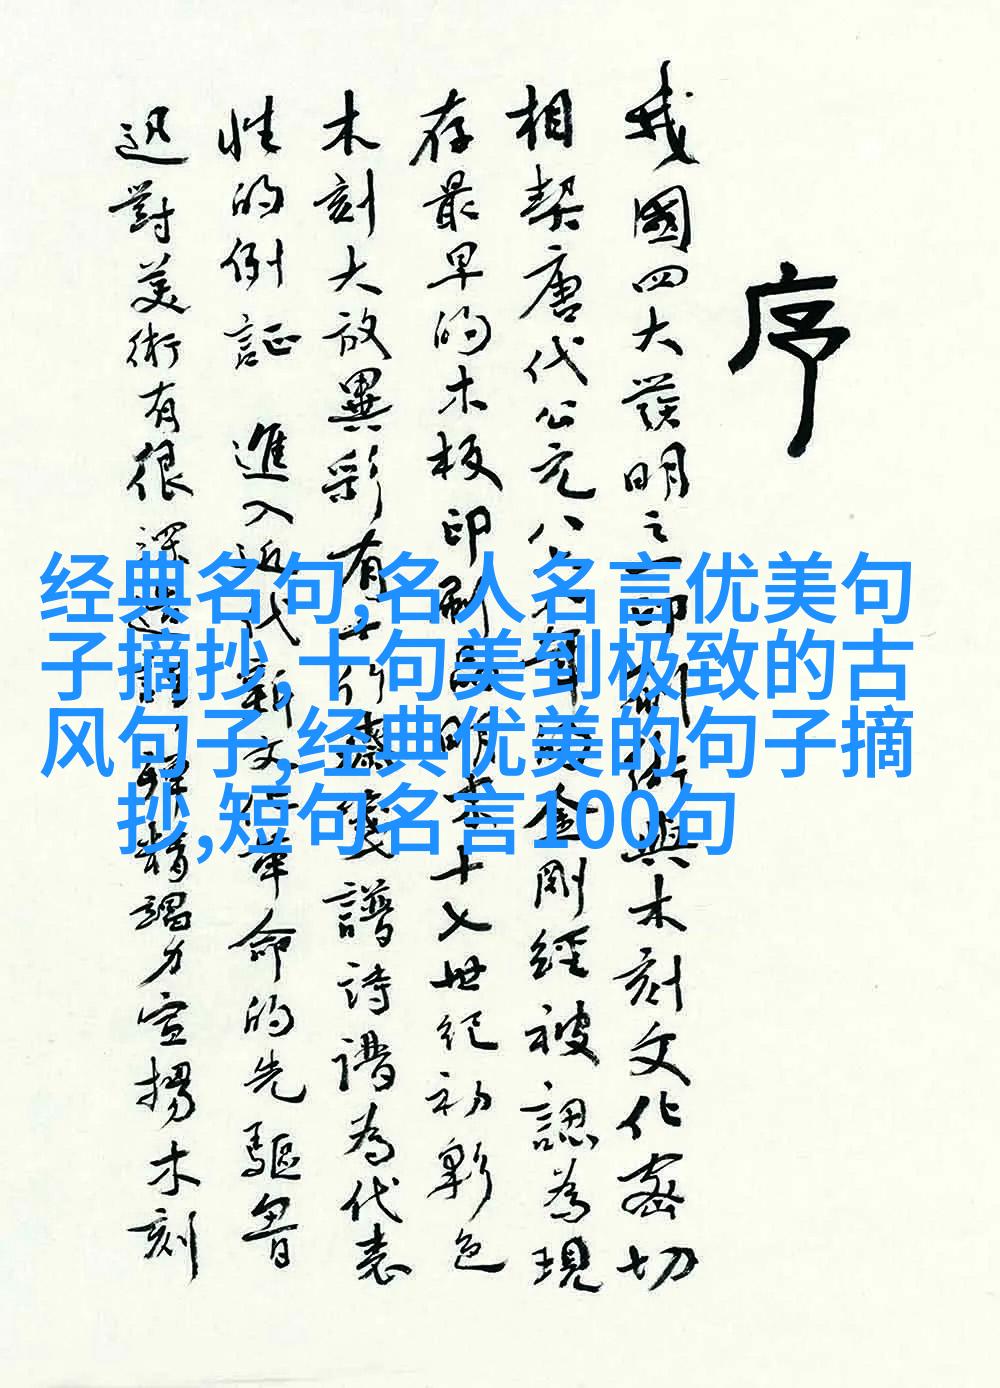 序
我國四大發明之印刷術與木刻文化密切
相契唐代公元八年金剛經被認為現
存最早的木板印刷品明末十七世紀初彩色
木刻大放異彩有十竹齋箋譜詩譜為代表
性的例証 進入近代新文化革命的先驅魯
迅對美術有很深造詣精竭力宣揚木刻
经典名句,名人名言优美句
子摘抄,十句美到极致的古
风句子,经典优美的句子摘
抄,短句名言100句